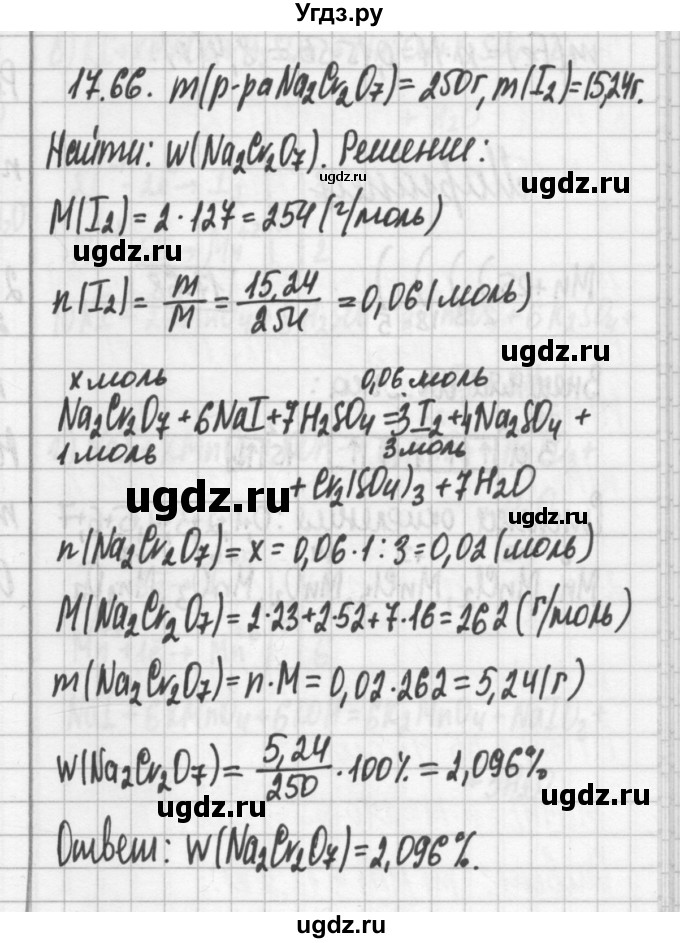 Угдз.ру
17.66. m(р-ра Na₂Cr₂O₇) = 250г, m(I₂) = 15,24г.
Найти: w(Na₂Cr₂O₇). Решение:
ugdz.ru
ugdz.ru
M(I₂) = 2 · 127 = 254 (г/моль)
ugdz.ru
n(I₂) = m/M = 15,24/254 = 0,06 (моль)
ugdz.ru
x моль 0,06 моль
Na₂Cr₂O₇ + 6NaI + 7H₂SO₄ = 3I₂ + 4Na₂SO₄ +
1 моль 3 моль
+ Cr₂(SO₄)₃ + 7H₂O
ugdz.ru
ugdz.ru
n(Na₂Cr₂O₇) = x = 0,06 · 1 : 3 = 0,02 (моль)
M(Na₂Cr₂O₇) = 2·23 + 2·52 + 7·16 = 262 (г/моль)
ugdz.ru
ugdz.ru
m(Na₂Cr₂O₇) = n · M = 0,02 · 262 = 5,24 (г)
w(Na₂Cr₂O₇) = 5,24/250 · 100% = 2,096%
ugdz.ru
ugdz.ru
Ответ: w(Na₂Cr₂O₇) = 2,096%.
ugdz.ru
ugdz.ru